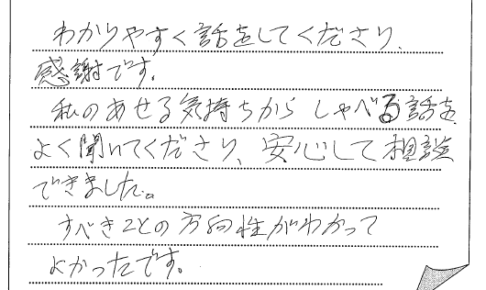 わかりやすく話をしてくださり、
感謝です。
私のあせる気持ちからしゃべる話を
よく聞いてくださり、安心して相談
できました。
すべきことの方向性がわかって
よかったです。